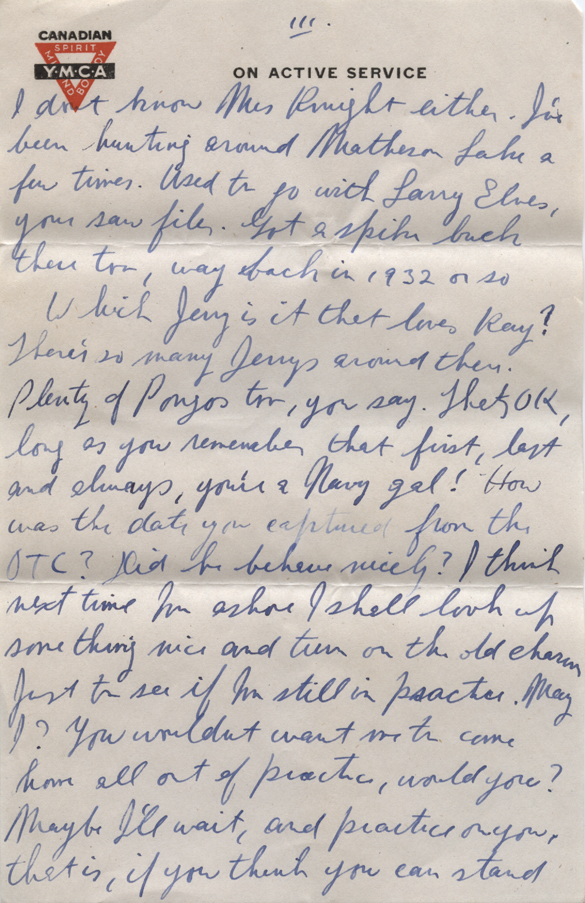 III.
CANADIAN
SPIRIT
MIND
BODY
Y·M·C·A
ON ACTIVE SERVICE
I don't know Mrs Knight either. I've
been hunting around Matheson Lake a
few times. Used to go with Larry Elves,
your saw filer. Got a spike buck
there too, way back in 1932 or so
Which Jerry is it that loves Kay?
There's so many Jerrys around then.
Plenty of Pongos too, you say. That's OK,
long as you remember that first, last
and always, you're a Navy gal! How
was the date you captured from the
OTC? Did he behave nicely? I think
next time I'm ashore I shall look up
something nice and turn on the old charm
Just to see if I'm still in practice. May
I? You wouldn't want me to come
home all out of practice, would you?
Maybe I'll wait, and practice on you,
that is, if you think you can stand